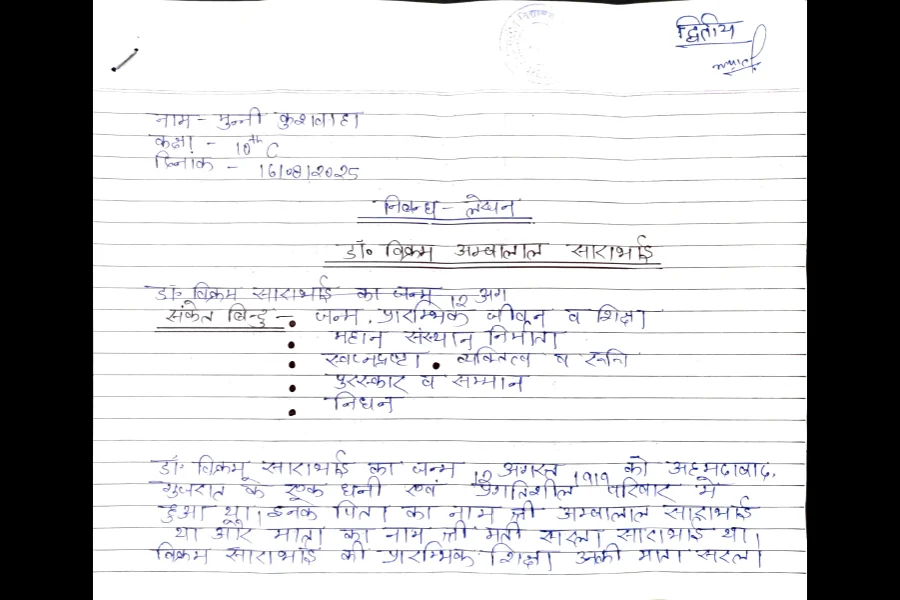 द्वितीय
नाम - मुन्नी कुशवाहा
कक्षा - 10th C
दिनांक - 16/08/2025
निबन्ध - लेखन
डॉ॰ विक्रम अम्बालाल साराभाई
डॉ॰ विक्रम साराभाई का जन्म 12 अग
संकेत बिन्दु - • जन्म, प्रारम्भिक जीवन व शिक्षा
• महान संस्थान निर्माता
• स्वप्नद्रष्टा • व्यक्तित्व व रूचि
• पुरस्कार व सम्मान
• निधन
डॉ॰ विक्रम साराभाई का जन्म 12 अगस्त 1919 को अहमदाबाद,
गुजरात के एक धनी एवं प्रगतिशील परिवार में
हुआ था। इनके पिता का नाम श्री अम्बालाल साराभाई
था और माता का नाम श्री मती सरला साराभाई था।
विक्रम साराभाई की प्रारम्भिक शिक्षा उनकी माता सरला